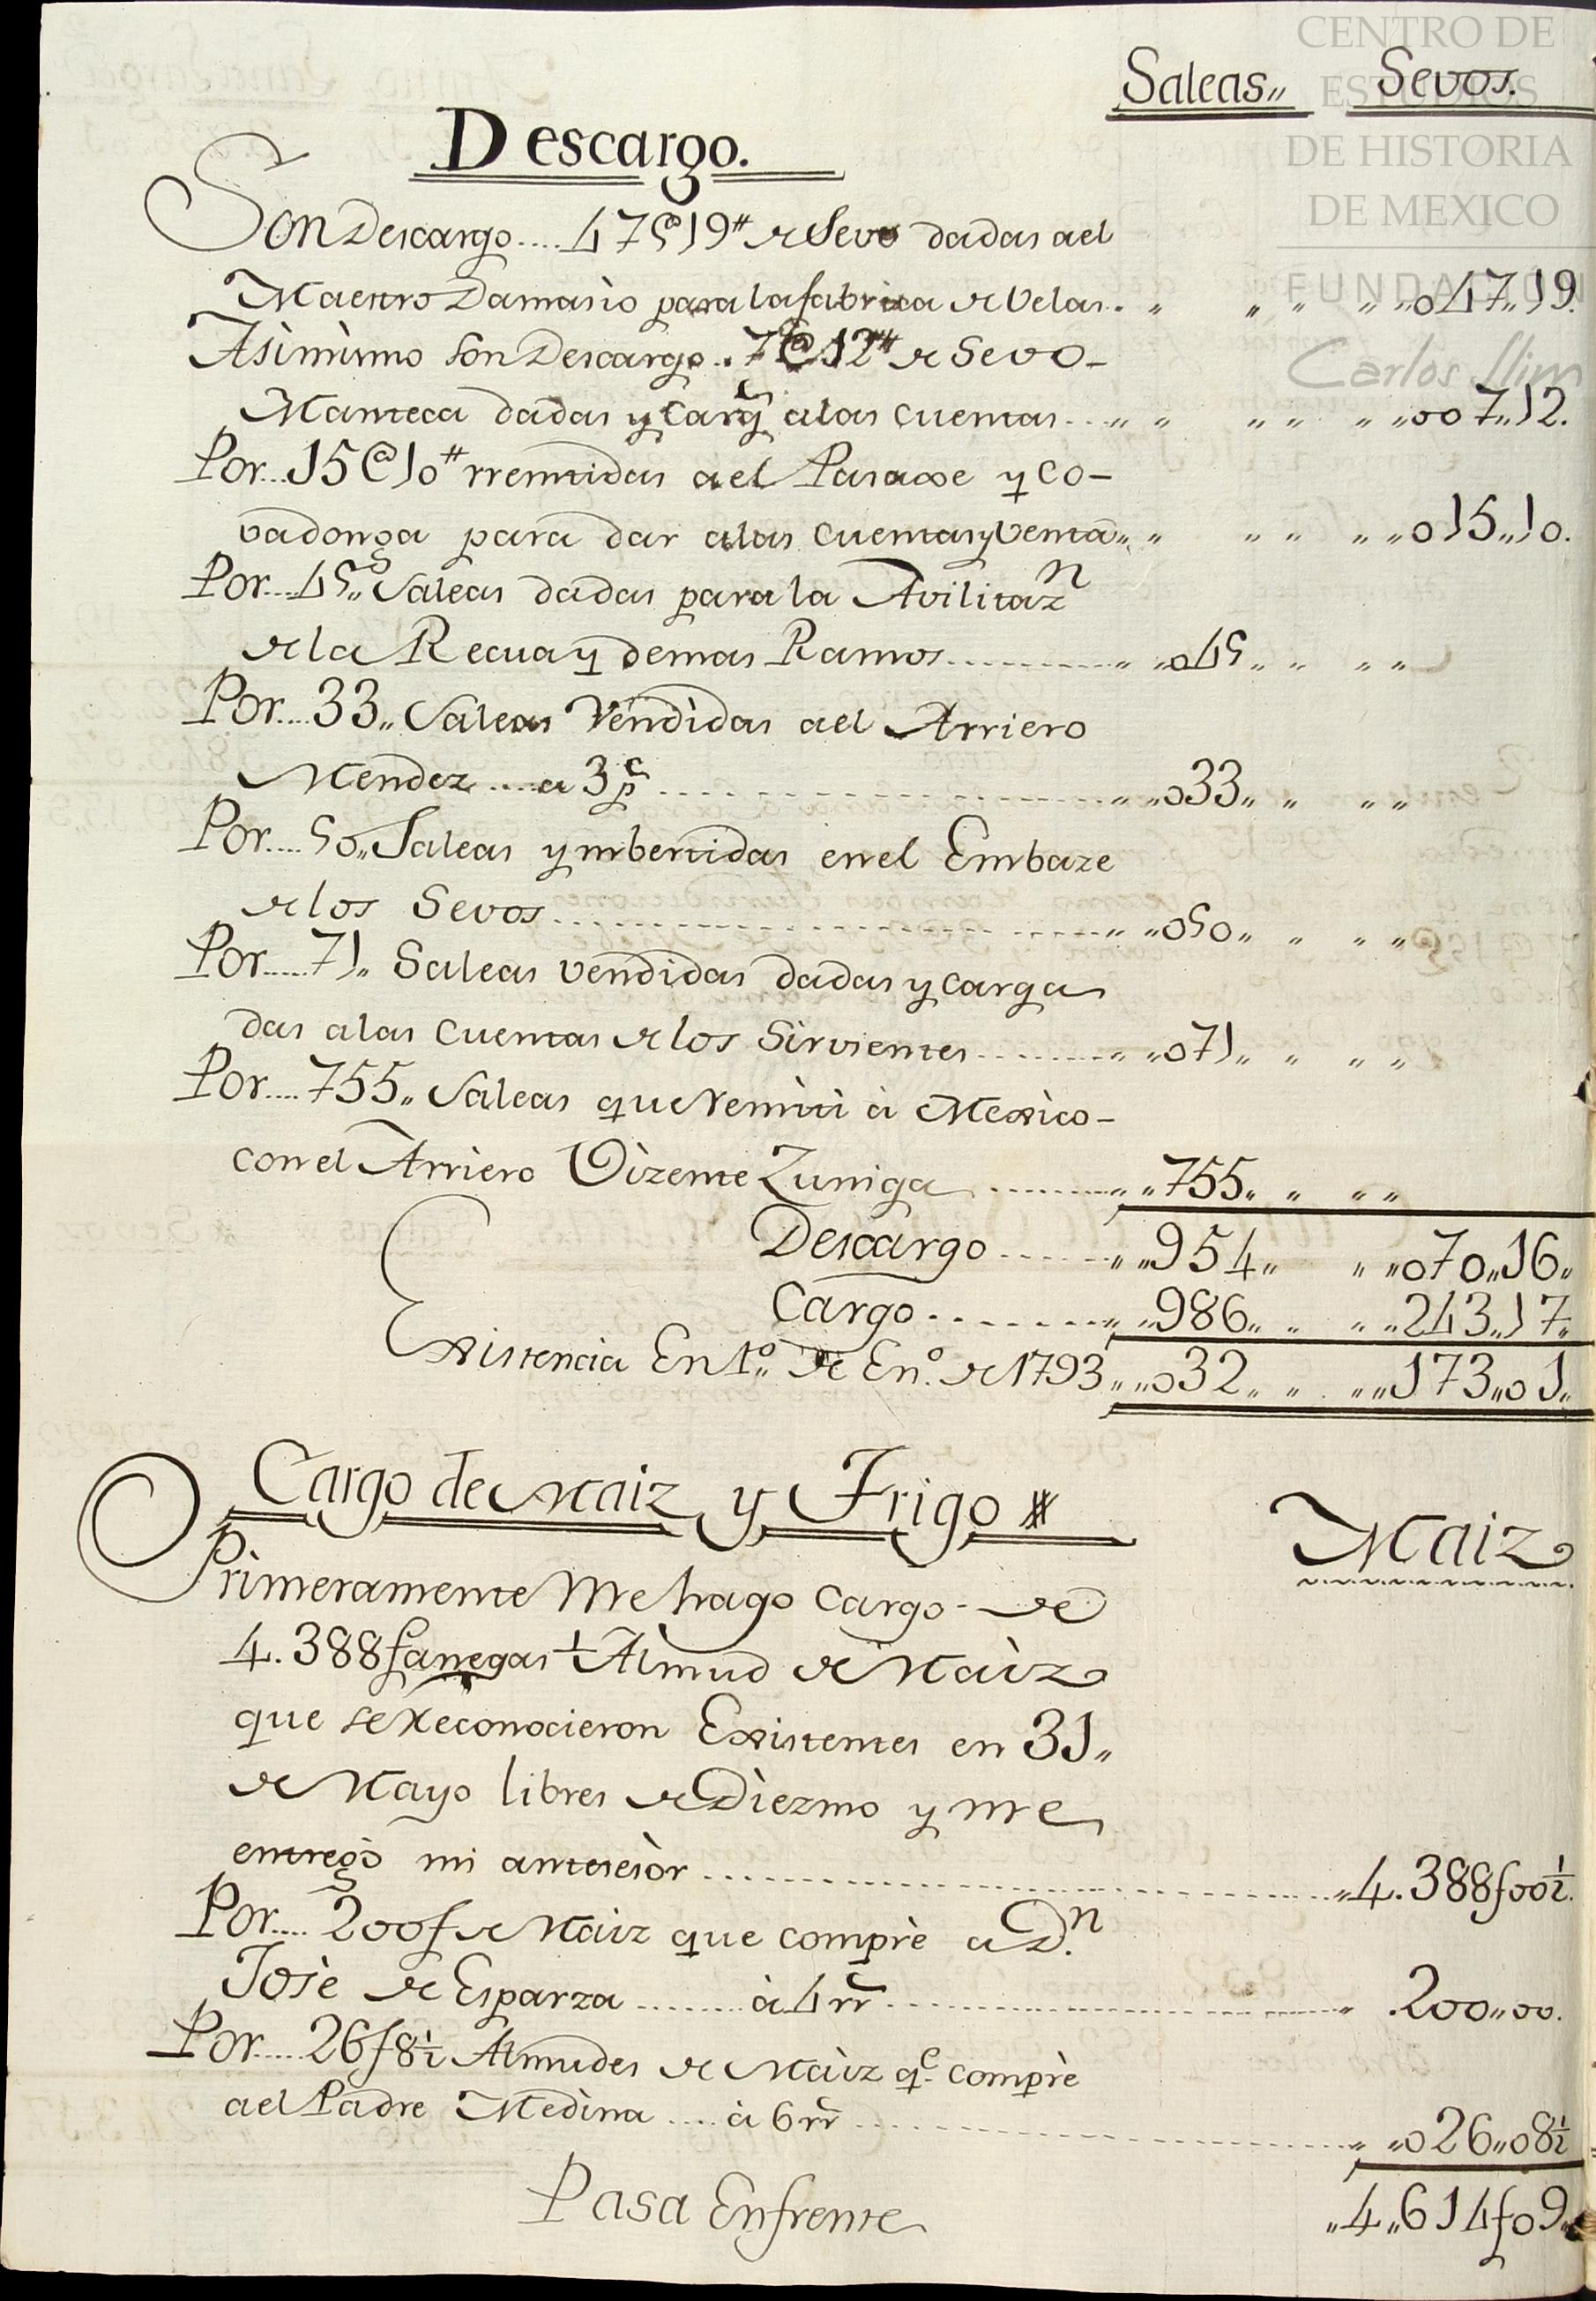 CENTRO DE
ESTUDIOS
DE HISTORIA
DE MEXICO
FUNDACIÓN
Carlos Slim
Saleas,, Sevos.
Descargo.
Son Descargo.... 47@19# de Sevo dadas ael
Maestro Damasio para la fabrica de Velas. ,, ,, ,, ,, ,,047,,19.
Asimismo son Descargo.. 7@12# de Sevo-
Manteca dadas y carg.s alas cuentas.. ,, ,, ,, ,, ,, ,,007,,12.
Por...15@10# rremitidas ael Pasaxe y Co-
vadonga para dar alas cuentas y Venta,, ,, ,, ,, ,, ,,015,,10.
Por....45,, Saleas dadas para la Avilitaz.n
de la Recua y demas Ramos.......... ,, ,,045,, ,, ,, ,,
Por....33,, Saleas Vendidas ael Arriero
Mendez....a 3 p.s .......... ,, ,,033,, ,, ,, ,,
Por....50,, Saleas ymbertidas en el Embaze
de los Sevos.......... ,, ,,050,, ,, ,, ,,
Por.....71,, Saleas vendidas dadas y carga
das alas cuentas de los Sirvientes........ ,, ,,071,, ,, ,, ,,
Por....755,, Saleas que Remiti à Mexico-
con el Arriero Vizente Zuniga ........ ,, ,,755,, ,, ,, ,,
Descargo...... ,, ,,954,, ,, ,,070,,16,,
Cargo........ ,, ,,986,, ,, ,, ,,243,,17,,
Existencia En 1.o de En.o de 1793,, ,,032,, ,, ,, ,,173,,01,,
Cargo de Maiz y Trigo #
Maiz
Primeramente Me hago Cargo - de
4.388 fanegas ½ Almud de Maiz
que se Reconocieron Existentes en 31,,
de Mayo libres de Diezmo y me
entregò mi antecesòr .......... ,,4.388f00½.
Por.... 200f de Maiz que comprè a D.n
Josè de Esparza ........ à 4 rr.s .......... ,, .200,,00.
Por.....26f8½ Almudes de Maiz q.e comprè
ael Padre Medina .... à 6 rr.s .......... ,, ,,026,,08½
Pasa Enfrente ,,4,,614f09,,